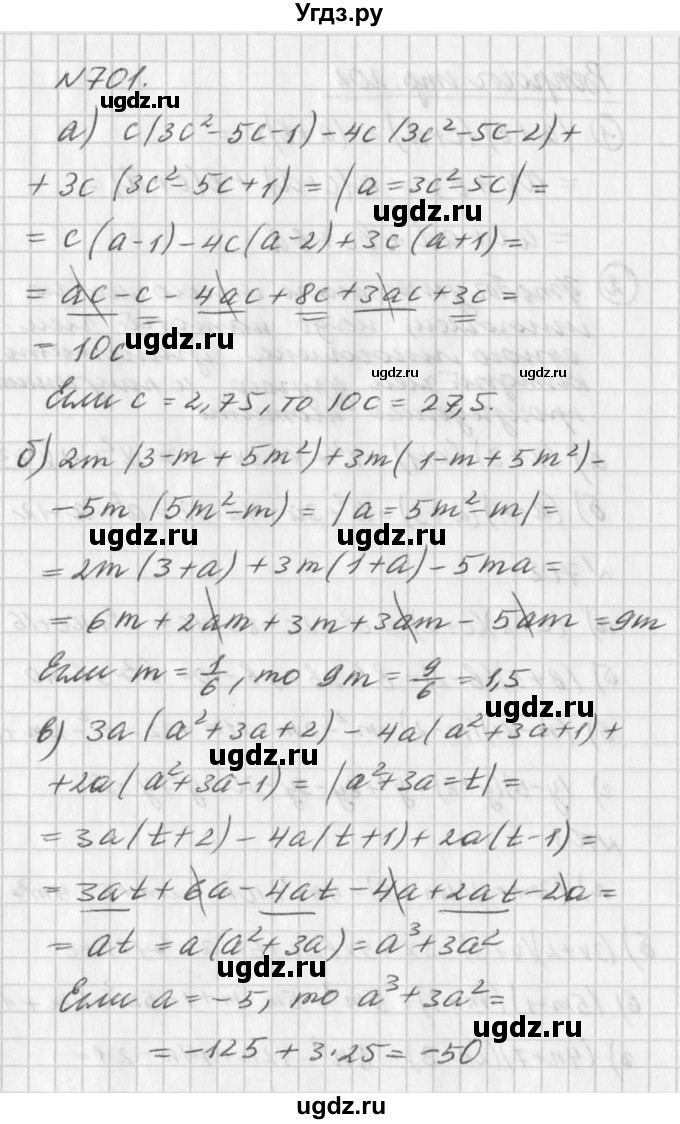 Угдз.ру
№701.
ugdz.ru
а) c(3c²-5c-1)-4c(3c²-5c-2)+
+3c(3c²-5c+1)=|a=3c²-5c|=
ugdz.ru
=c(a-1)-4c(a-2)+3c(a+1)=
=ac-c-4ac+8c+3ac+3c=
=10c
ugdz.ru
ugdz.ru ugdz.ru
Если c=2,75, то 10c=27,5.
б) 2m(3-m+5m²)+3m(1-m+5m²)-
-5m(5m²-m)=|a=5m²-m|=
ugdz.ru ugdz.ru
=2m(3+a)+3m(1+a)-5ma=
=6m+2am+3m+3am-5am=9m
Если m=1/6, то 9m=9/6=1,5
ugdz.ru
в) 3a(a²+3a+2)-4a(a²+3a+1)+
ugdz.ru
+2a(a²+3a-1)=|a²+3a=t|=
=3a(t+2)-4a(t+1)+2a(t-1)=
=3at+6a-4at-4a+2at-2a=
=at=a(a²+3a)=a³+3a²
ugdz.ru
Если a=-5, то a³+3a²=
ugdz.ru
=-125+3·25=-50
ugdz.ru